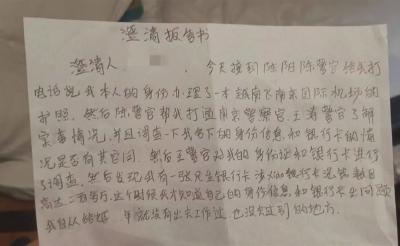 澄清报告书
澄清人 今天接到陈阳陈警官给我打
电话说我本人的身份办理了一本越南飞南京国际机场的
护照。然后陈警官帮我打通南京警察官，王涛警官了解
实事情况，并且调查一下我名下的身份信息和银行卡的情
况是否有其它问。然后王警官对我的身份证和银行卡进行
了调查，然后发现我有一张民生银行卡涉
高达二百多万，这个时候我才知道自己的身份信息和银行卡出问题
我自从结婚 年就没有出去工作过，也没去过别的地方。